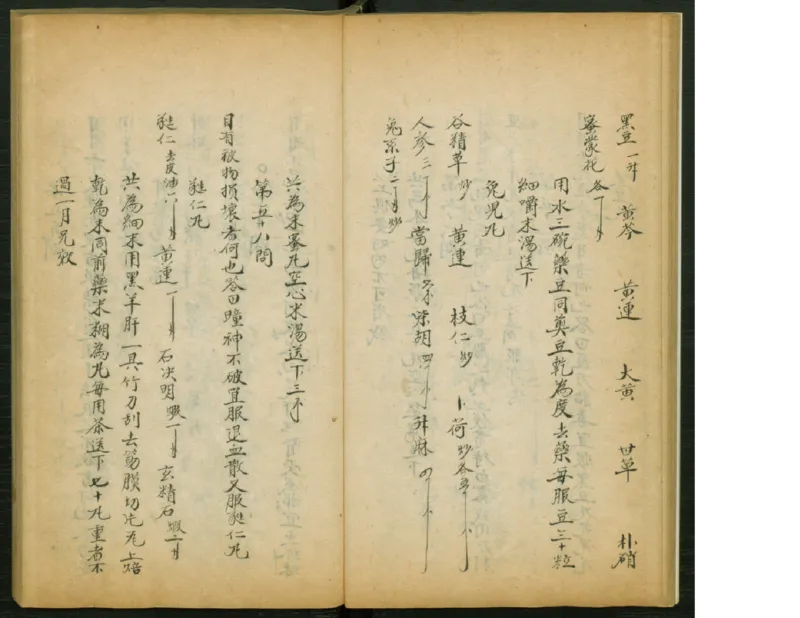 黑豆一升 黃芩 黃連 大黃 甘草 朴硝
密蒙花 各一
用水三碗藥豆同煑豆乾為度去藥每服豆三十粒
細嚼末湯送下
兔兒丸
谷精草炒 黃連 枝仁炒 卜荷炒各
人參三 當歸 柴胡四 升麻四
兔糸子二 炒
共為末蜜丸空心米湯送下三
第五十八問
目有被物損壞者何也答曰瞳神不破宜服退血散又服蕤仁丸
蕤仁丸
蕤仁去皮油 黃連一 石決明煆一 玄精石煆二
共為細末用黑羊肝一具竹刀刮去筋膜切片瓦上焙
乾為末同前藥米糊為丸每用茶送下七十丸重者不
過一月見效